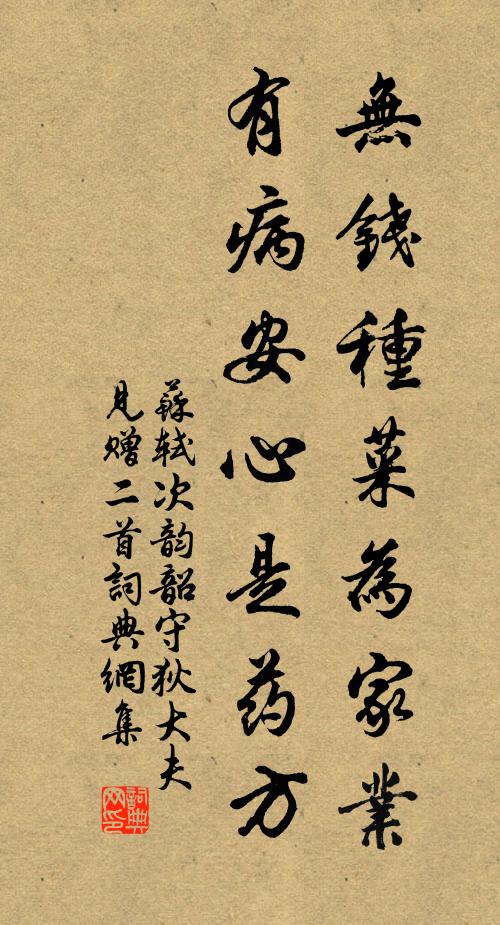 無錢種菜為家業
有病安心是药方
蘇軾次韵韶守狄大夫
見贈二首詞典網集
詞典
网印